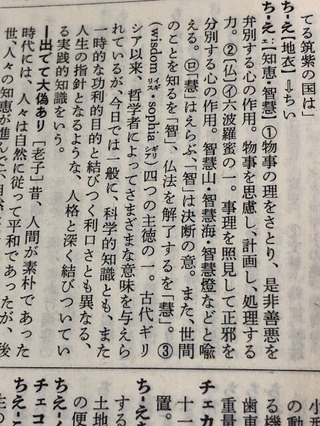 てる筑紫の国は」
ち-え【地衣】⇨ちい
ち-え【知恵・智慧】①物事の理をさとり、是非善悪を
弁別する心の作用。物事を思慮し、計画し、処理する
力。②〔仏〕㋑六波羅蜜の一。事理を照見して正邪を
分別する心の作用。智慧山・智慧海・智慧燈などと喩
える。㋺「慧」はえらぶ、「智」は決断の意。また、世間
のことを知るを「智」、仏法を解了するを「慧」。③
(wisdom イギリス・sophia ギリシア)四つの主徳の一。古代ギリ
シア以来、哲学者によってさまざまな意味を与えら
れているが、今日では一般に、科学的知識とも、また
一時的な功利的目的と結びつく利口さとも異なる、
人生の指針となるような、人格と深く結びついてい
る実践的知識をいう。
―出でて大偽あり [老子]昔、人間が素朴であった
時代には、人々は自然に従って平和であったが、後
世、人々の知恵が進んで、
チェカ
小形
る機
歯車
重量
十一
置。
ち-え
する
土地
の便
チェコ
ち-え